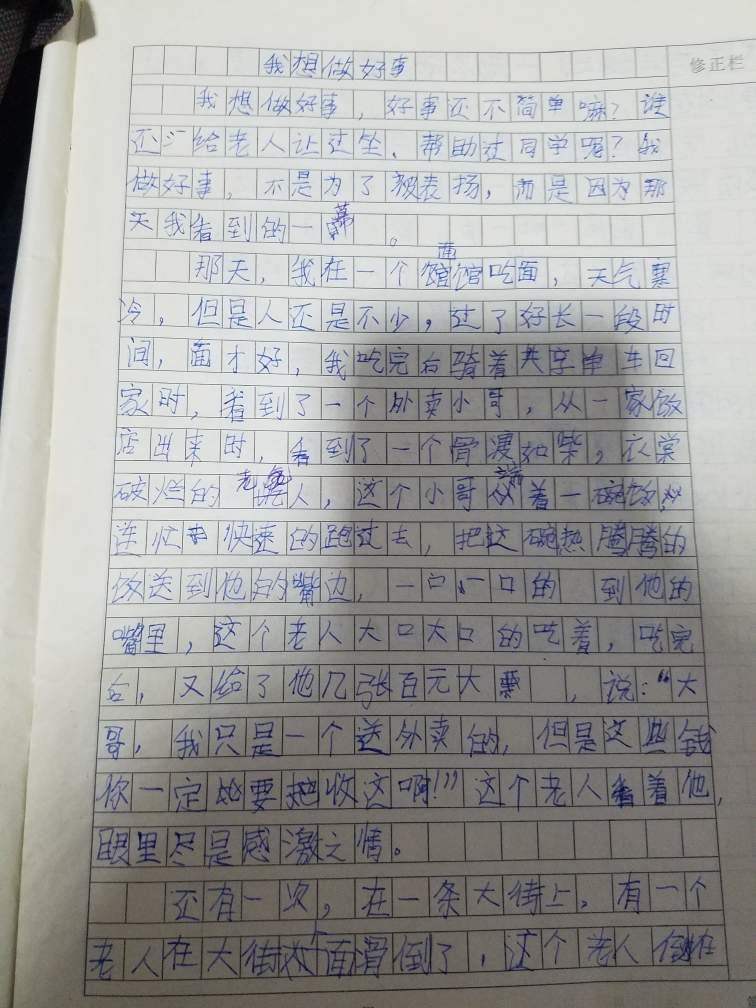 修正栏
我想做好事
我想做好事，好事还不简单嘛？谁
还给老人让过坐，帮助过同学呢？我
做好事，不是为了被表扬，而是因为那
天我看到的一幕。
那天，我在一个面馆吃面，天气寒
冷，但是人还是不少，过了好长一段时
间，面才好，我吃完后骑着共享单车回
家时，看到了一个外卖小哥，从一家饭
店出来时，看到了一个骨瘦如柴，衣裳
破烂的老人，这个小哥端着一碗饭，
连忙快速的跑过去，把这碗热腾腾的
饭送到他的嘴边，一口一口的到他的
嘴里，这个老人大口大口的吃着，吃完
后，又给了他几张百元大票，说：“大
哥，我只是一个送外卖的，但是这些钱
你一定要收这啊！”这个老人看着他，
眼里尽是感激之情。
还有一次，在一条大街上，有一个
老人在大街上面滑倒了，这个老人倒在